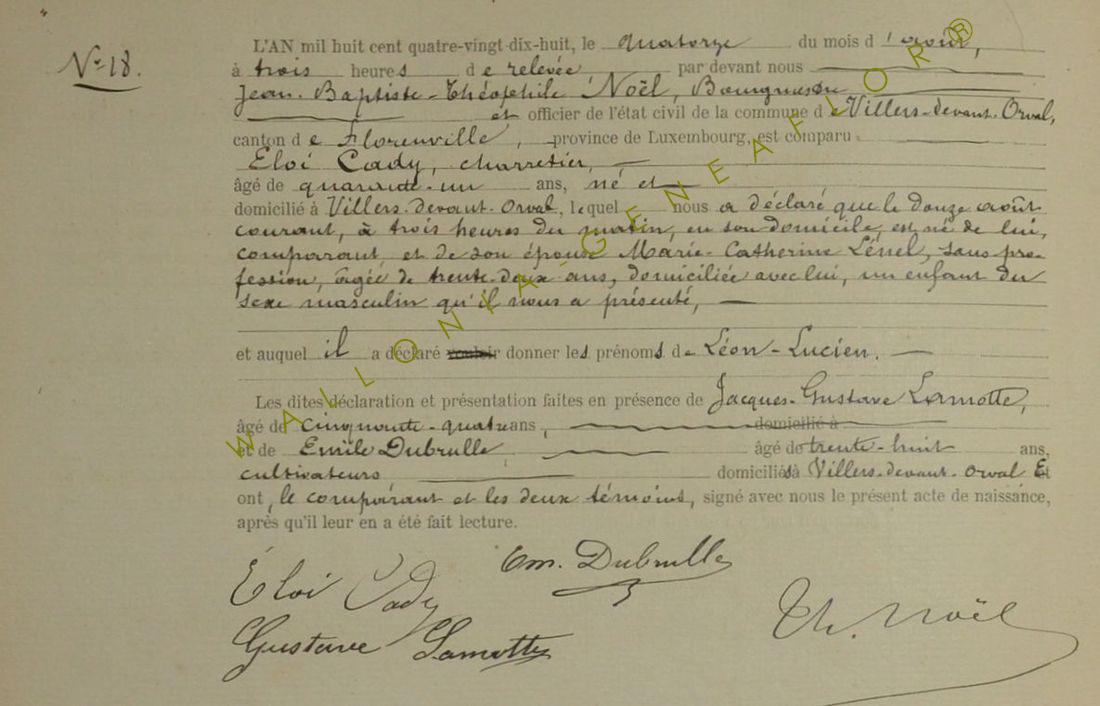 N° 18.
L'AN mil huit cent quatre-vingt-dix-huit, le quatorze du mois d'août,
à trois heures de relevée par devant nous
Jean-Baptiste-Théophile Noël, Bourgmestre
et officier de l'état civil de la commune de Villers-devant-Orval,
canton de Florenville, province de Luxembourg, est comparu
Eloi Cady, charretier,
âgé de quarante-un ans, né et
domicilié à Villers-devant-Orval, lequel nous a déclaré que le douze août
courant, à trois heures du matin, en son domicile, est né de lui,
comparant, et de son épouse Marie-Catherine Lénel, sans pro-
fession, âgée de trente-deux ans, domiciliée avec lui, un enfant du
sexe masculin qu'il nous a présenté,
et auquel il a déclaré vouloir donner les prénoms de Léon-Lucien.
Les dites déclaration et présentation faites en présence de Jacques-Gustave Lamotte,
âgé de cinquante-quatre ans, domicilié à
et de Emile Dubrulle âgé de trente-huit ans,
cultivateurs domiciliés à Villers-devant-Orval Et
ont, le comparant et les deux témoins, signé avec nous le présent acte de naissance,
après qu'il leur en a été fait lecture.
Em. Dubrulle
Eloi Cady
Th. Noël
Gustave Lamotte
WALLONIA-GENEAFLOR®